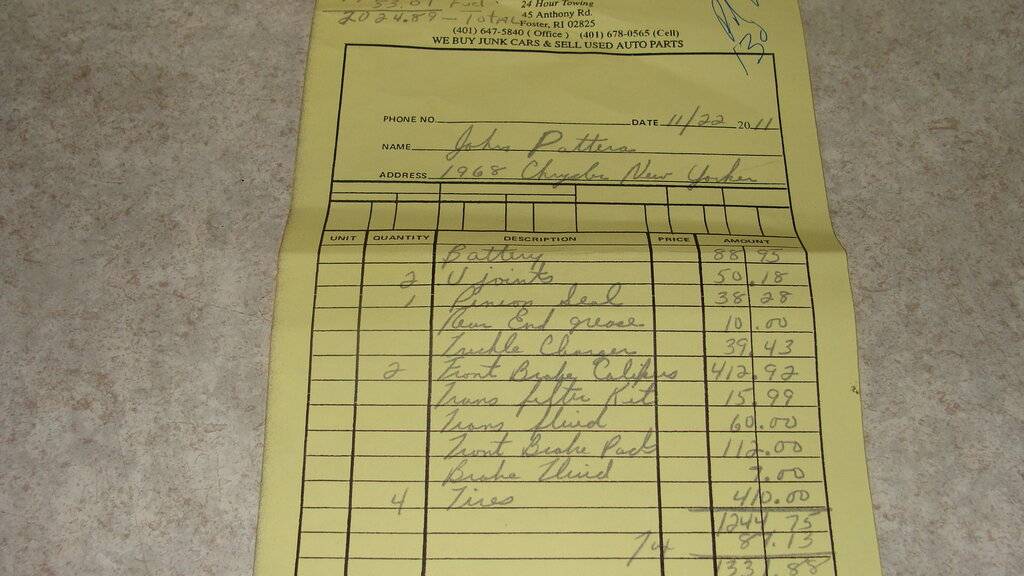 53.01 Fuel
2024.89 - Total
24 Hour Towing
45 Anthony Rd
Foster, RI 02825
(401) 647-5840 ( Office ) (401) 678-0565 (Cell)
WE BUY JUNK CARS & SELL USED AUTO PARTS
PHONE NO. DATE 11/22 2011
NAME John
ADDRESS 1968 Chrysler New Yorker
UNIT QUANTITY DESCRIPTION PRICE AMOUNT
Battery 88 95
2 U joints 50.18
1 Pinion Seal 38 28
Rear End grease 10.00
Trickle Charger 39.43
2 Front Brake Calipers 412.92
Trans filter Kit 15.99
Trans fluid 60.00
Front Brake Pads 112.00
Brake Fluid 7.00
4 Tires 410.00
1244 75
87.13
1331.88